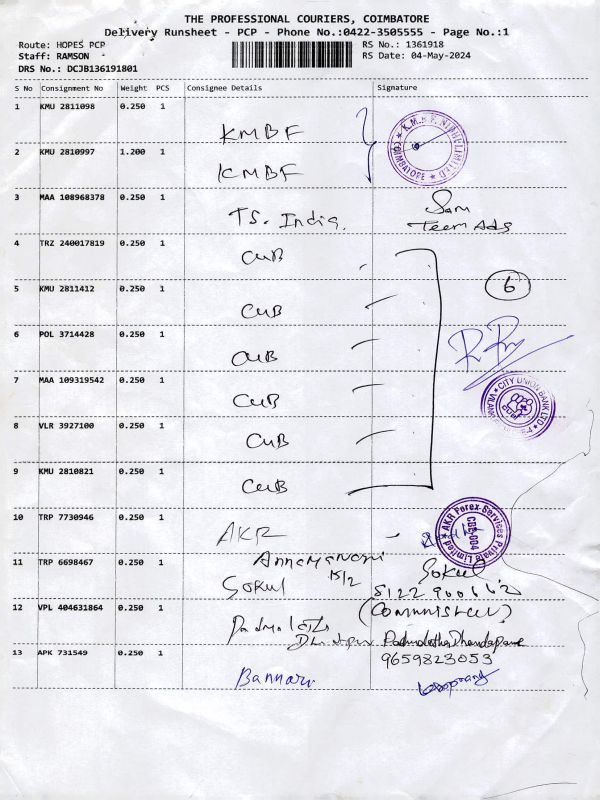 THE PROFESSIONAL COURIERS, COIMBATORE
Delivery Runsheet - PCP - Phone No.:0422-3505555 - Page No.:1
Route: HOPES PCP
RS No.: 1361918
Staff: RAMSON
RS Date: 04-May-2024
DRS No.: DCJB136191801
S No Consignment No Weight PCS Consignee Details Signature
1 KMU 2811098 0.250 1
KMBF
2 KMU 2810997 1.200 1
KMBF
3 MAA 108968378 0.250 1
TS. India. Sam
Teem Ads
4 TRZ 240017819 0.250 1
CUB
5 KMU 2811412 0.250 1
6
CUB
6 POL 3714428 0.250 1
CUB
7 MAA 109319542 0.250 1
CITY UNION BANK LTD.
CUB
8 VLR 3927100 0.250 1
CUB
9 KMU 2810821 0.250 1
CUB
10 TRP 7730946 0.250 1
AKR Forex Services Private Limited
CBE-004
AKR
11 TRP 6698467 0.250 1
15/2
Gokul Gokul
12 VPL 404631864 0.250 1
13 APK 731549 0.250 1
9659823053
Bannari